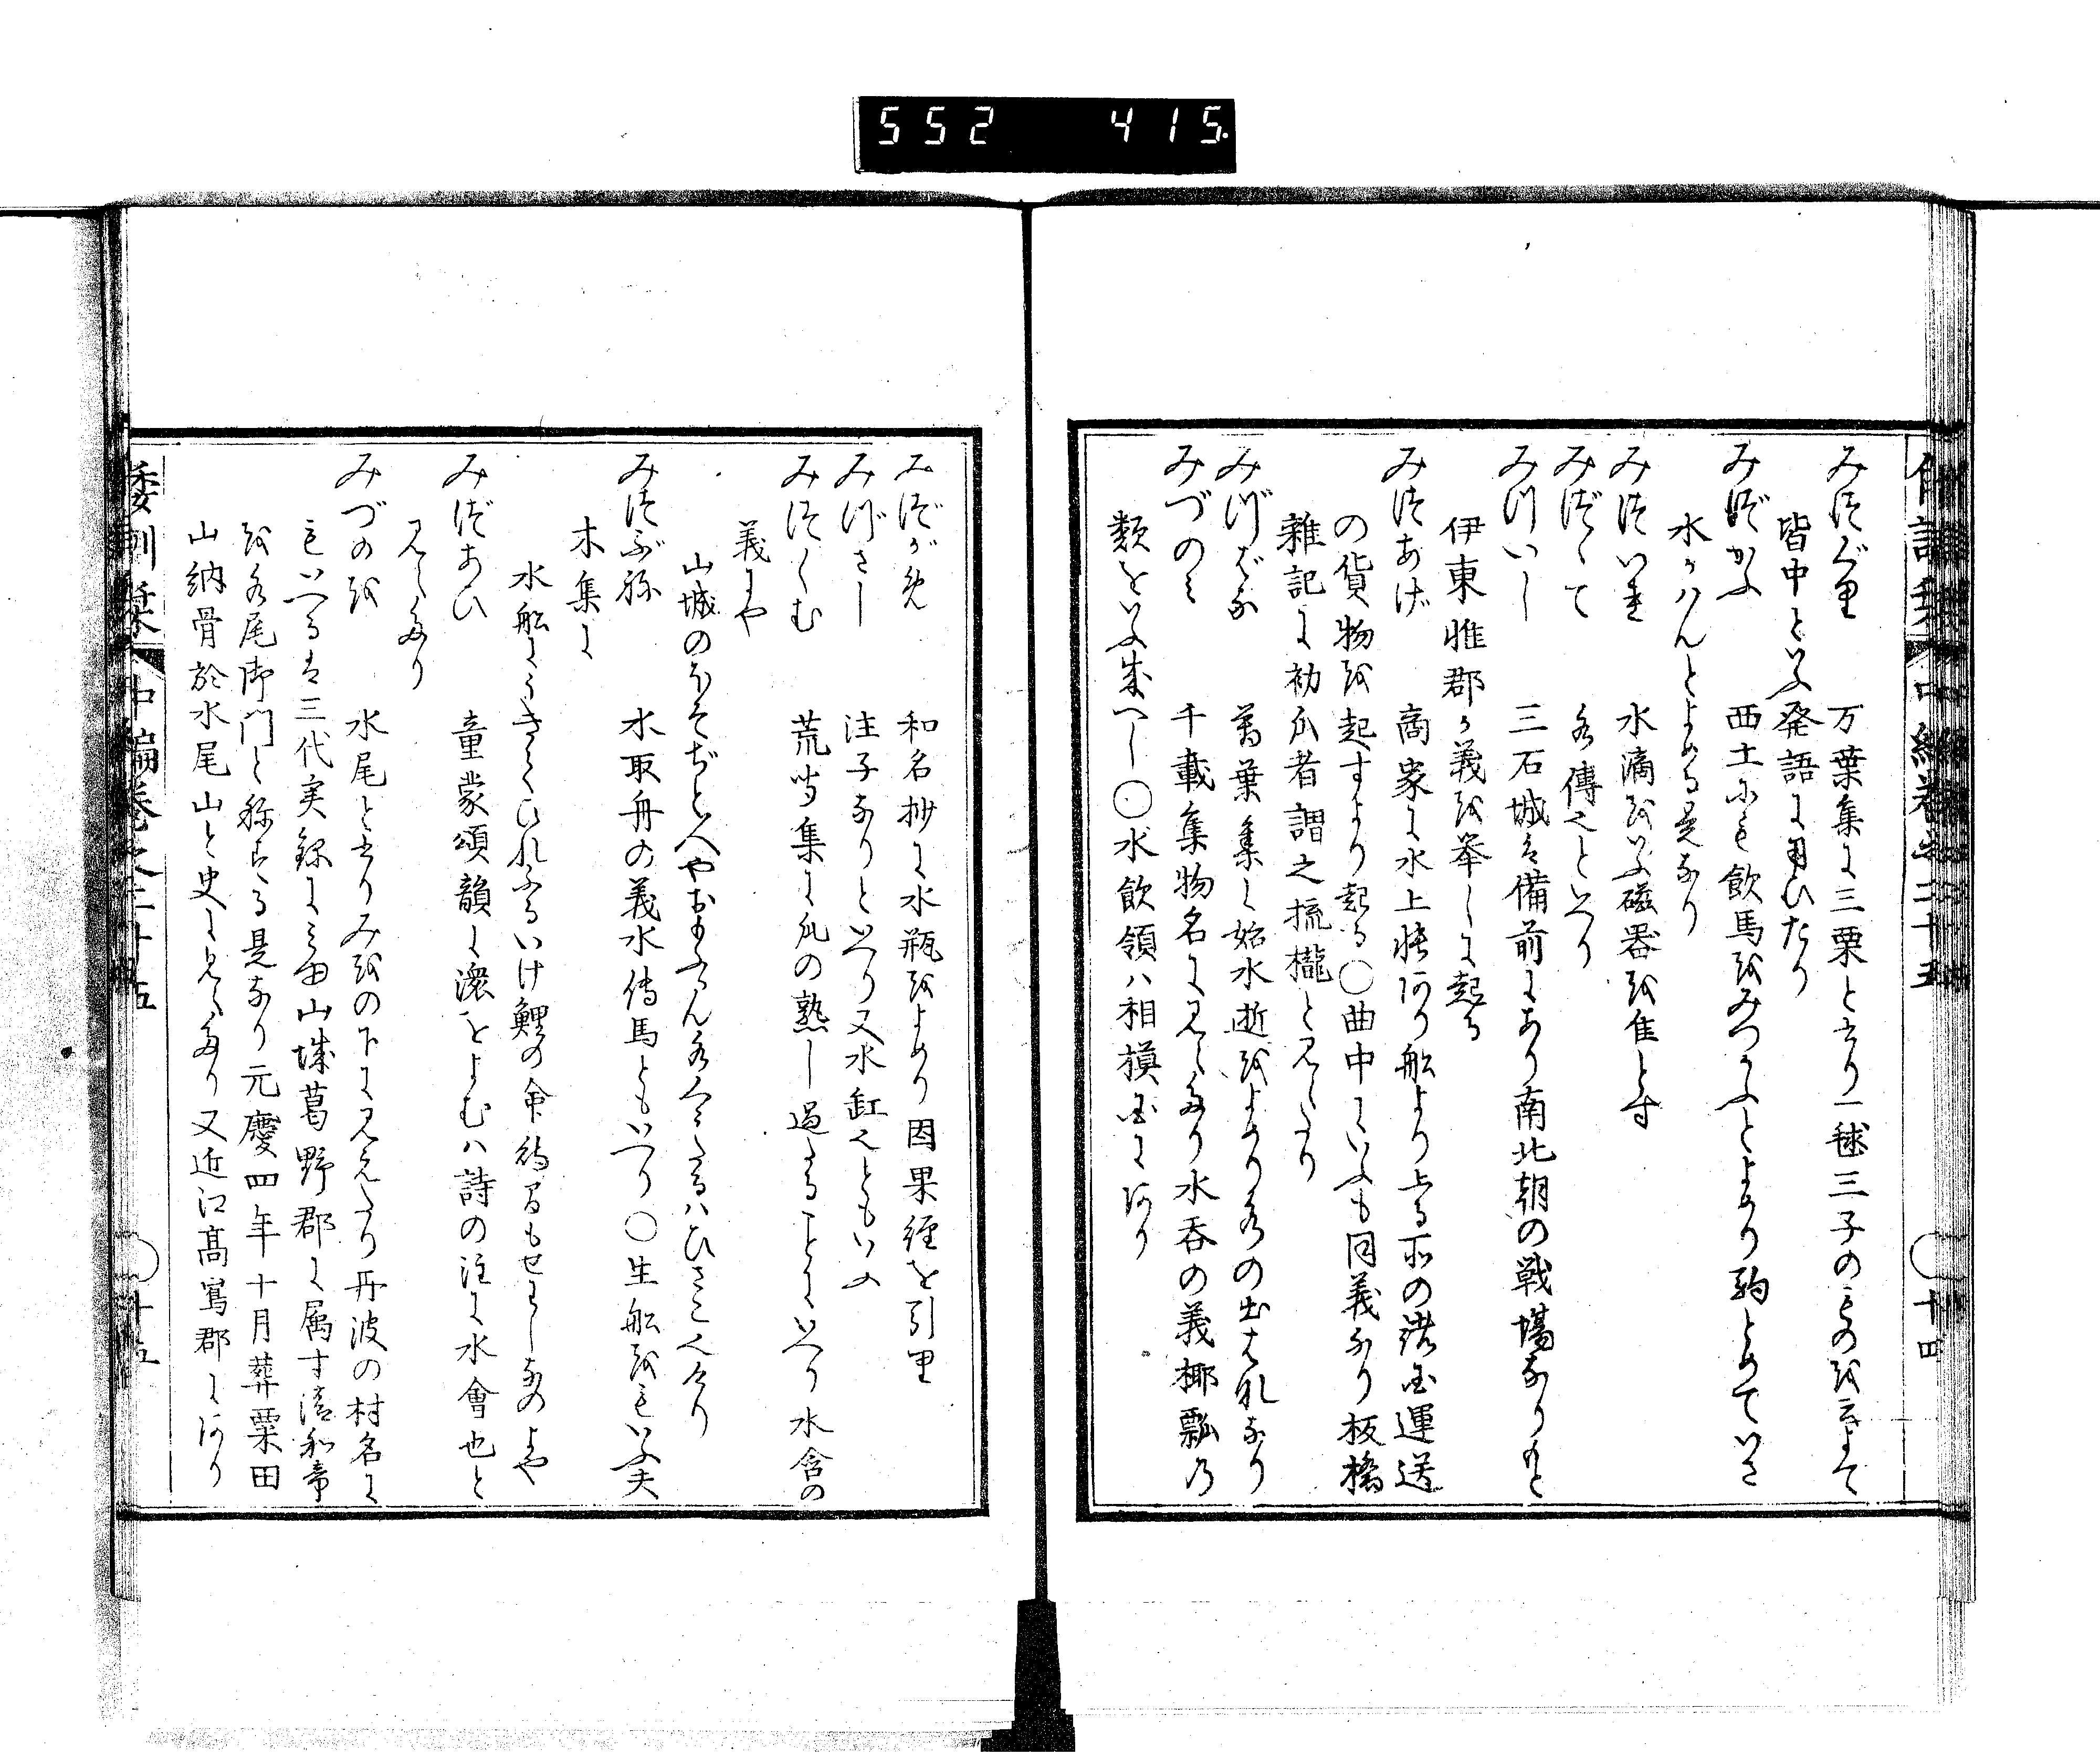 552 415
みつぐり 万葉集に三栗と書り一毬三子のものをいふよて
皆中といふ発語に用ひたり
みづかふ 西土にも飲馬をみつかふとよめり駒とめていざ
水かはんとよめる是なり
みづいれ 水滴をいふ磁器を佳とす
みづくて 水傳也といへり
みついし 三石城は備前にあり南北朝の戦場なりもと
伊東惟郡が義を挙しに起る
みづあげ 商家に水上帳あり船より上る所の諸国運送
の貨物を起すより起る○曲中にいふも同義なり板橋
雑記に初瓜者謂之梳櫳と見えたり
みづばな 萬葉集に始水逝をよめり水の出はななり
みづのみ 千載集物名に見えたり水呑の義椰瓢乃
類をいふ成へし○水飲領ハ相模国にあり
倭訓栞 中編巻之二十五 ○十四
みづがめ 和名抄に水瓶をよめり因果経を引里
みづさし 注子なりといへり又水缸也ともいふ
みづくむ 荒时集に瓜の熟し過たることにいへり水含の
義にや
山城の
みづぶね 水取舟の義水傳馬ともいへり○生船をもいふ夫
木集に
水船にうきてひれふるいけ鯉の命待間もせはしなのよや
みづあひ 童蒙頌韻に濃をよむハ詩の注に水會也と
見えたり
みづのを 水尾と書りみをの下に見えたり丹波の村名に
もいへるは三代実録に山城葛野郡に属す清和帝
を水尾御門と称する是なり元慶四年十月葬粟田
山納骨於水尾山と史に見えたり又近江高嶌郡にあり
倭訓栞 中編巻之二十五 ○十五